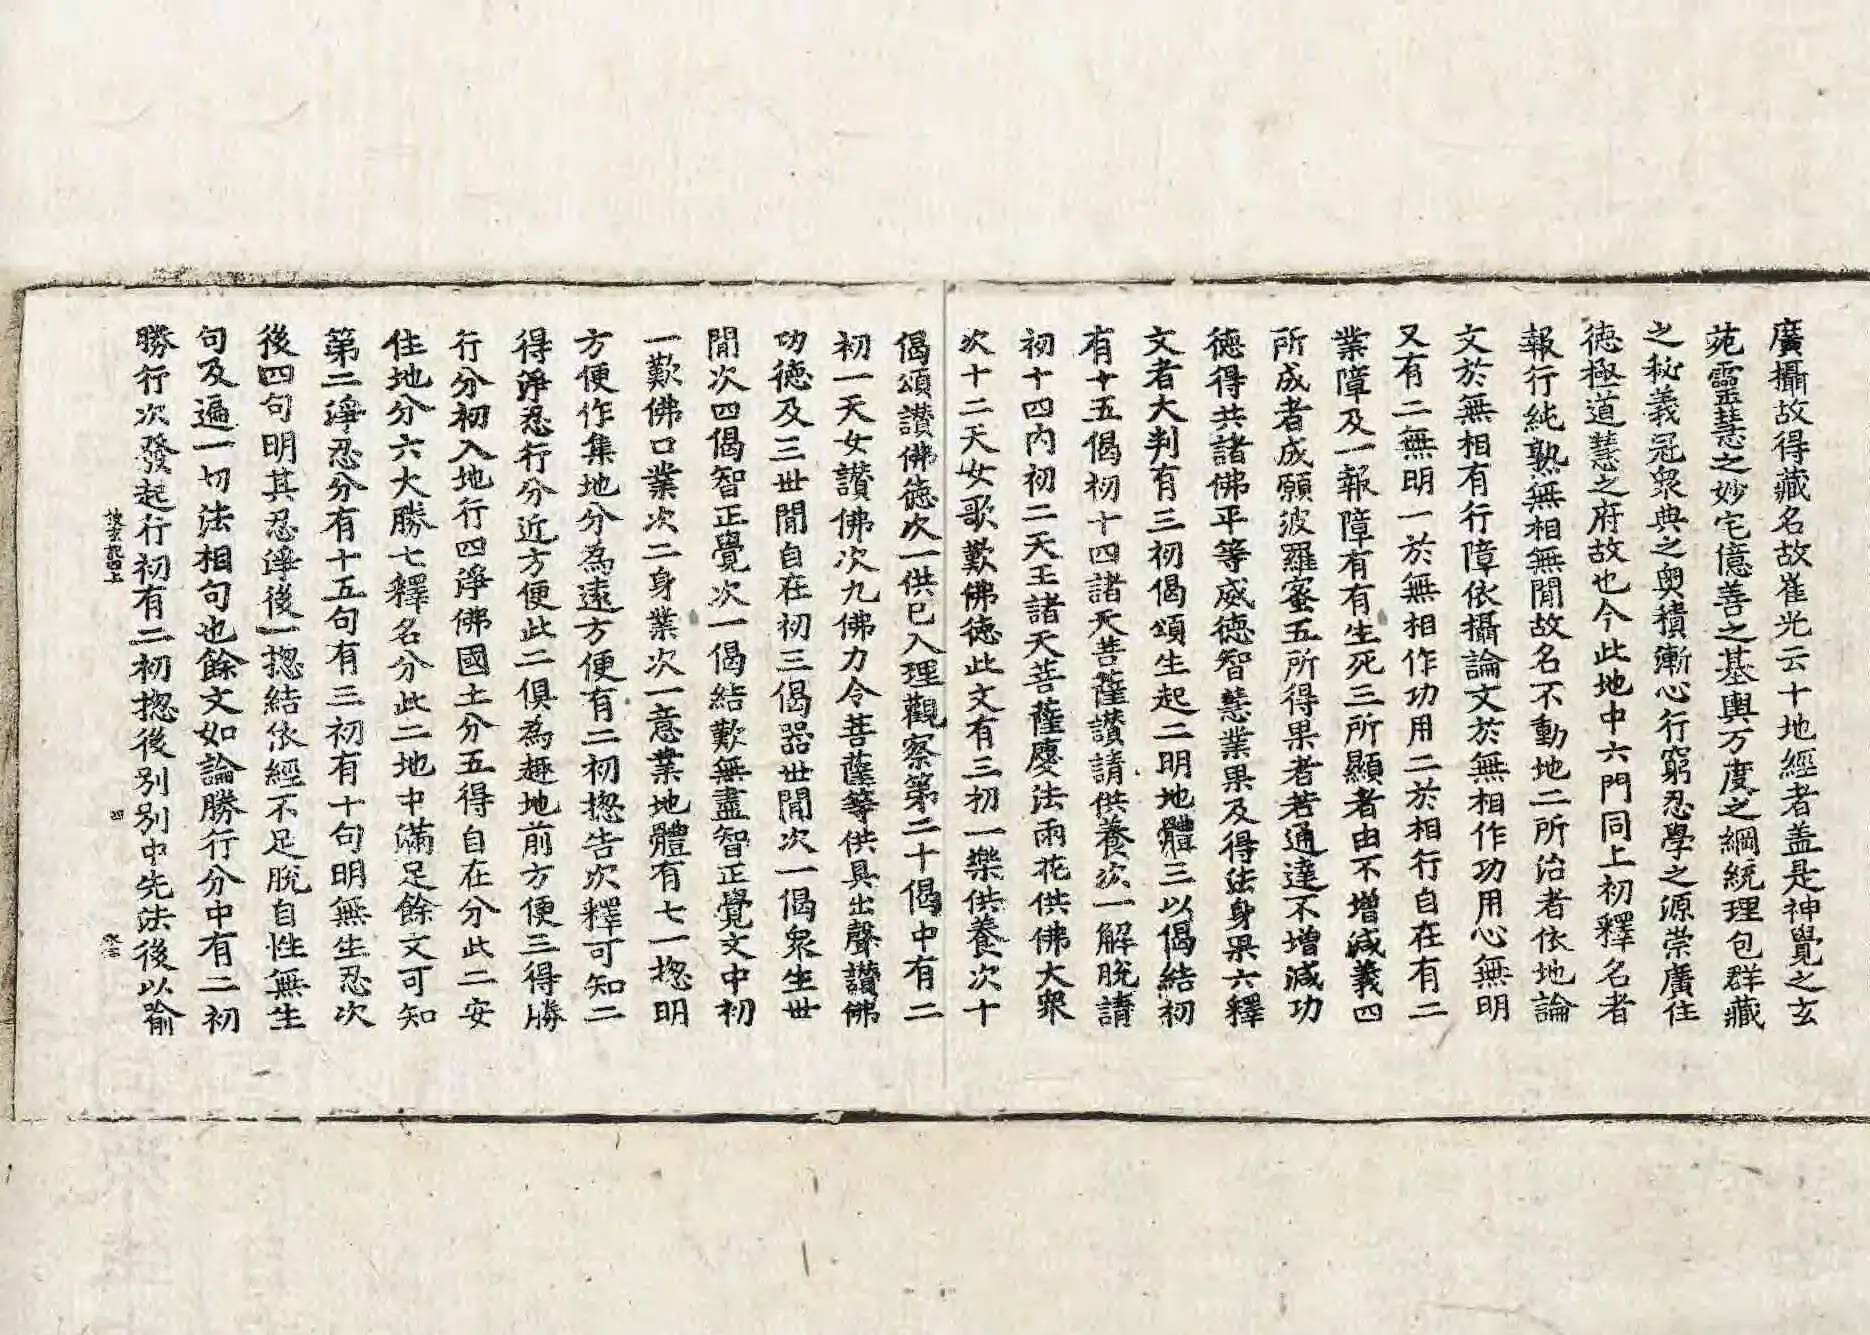 廣攝故得藏名故崔光云十地經者盖是神覺之玄
苑靈慧之妙宅億善之基輿万度之綱統理包群藏
之秘義冠衆典之奥積漸心行窮忍學之源崇廣住
徳極道慧之府故也今此地中六門同上初釋名者
報行純熟無相無閒故名不動地二所治者依地論
文於無相有行障依攝論文於無相作功用心無明
又有二無明一於無相作功用二於相行自在有二
業障及一報障有有生死三所顯者由不增減義四
所成者成願波羅蜜五所得果者若通達不增減功
德得共諸佛平等威德智慧業果及得法身果六釋
文者大判有三初偈頌生起二明地體三以偈結初
有十五偈初十四諸天菩薩讃請供養次一解脱請
初十四内初二天王諸天菩薩慶法雨花供佛大衆
次十二天女歌歎佛徳此文有三初一樂供養次十
偈頌讃佛徳次一供已入理觀察第二十偈中有二
初一天女讃佛次九佛力令菩薩等供具出聲讃佛
功徳及三世閒自在初三偈器世閒次一偈衆生世
閒次四偈智正覺次一偈結歎無盡智正覺文中初
一歎佛口業次二身業次一意業地體有七一揔明
方便作集地分為遠方便有二初揔告次釋可知二
得淨忍行分近方便此二俱為趣地前方便三得勝
行分初入地行四淨佛國土分五得自在分此二安
住地分六大勝七釋名分此二地中滿足餘文可知
第二淨忍分有十五句有三初有十句明無生忍次
後四句明其忍淨後一揔結依經不足脱自性無生
句及遍一切法相句也餘文如論勝行分中有二初
勝行次發起行初有二初揔後别别中先法後以喻
四